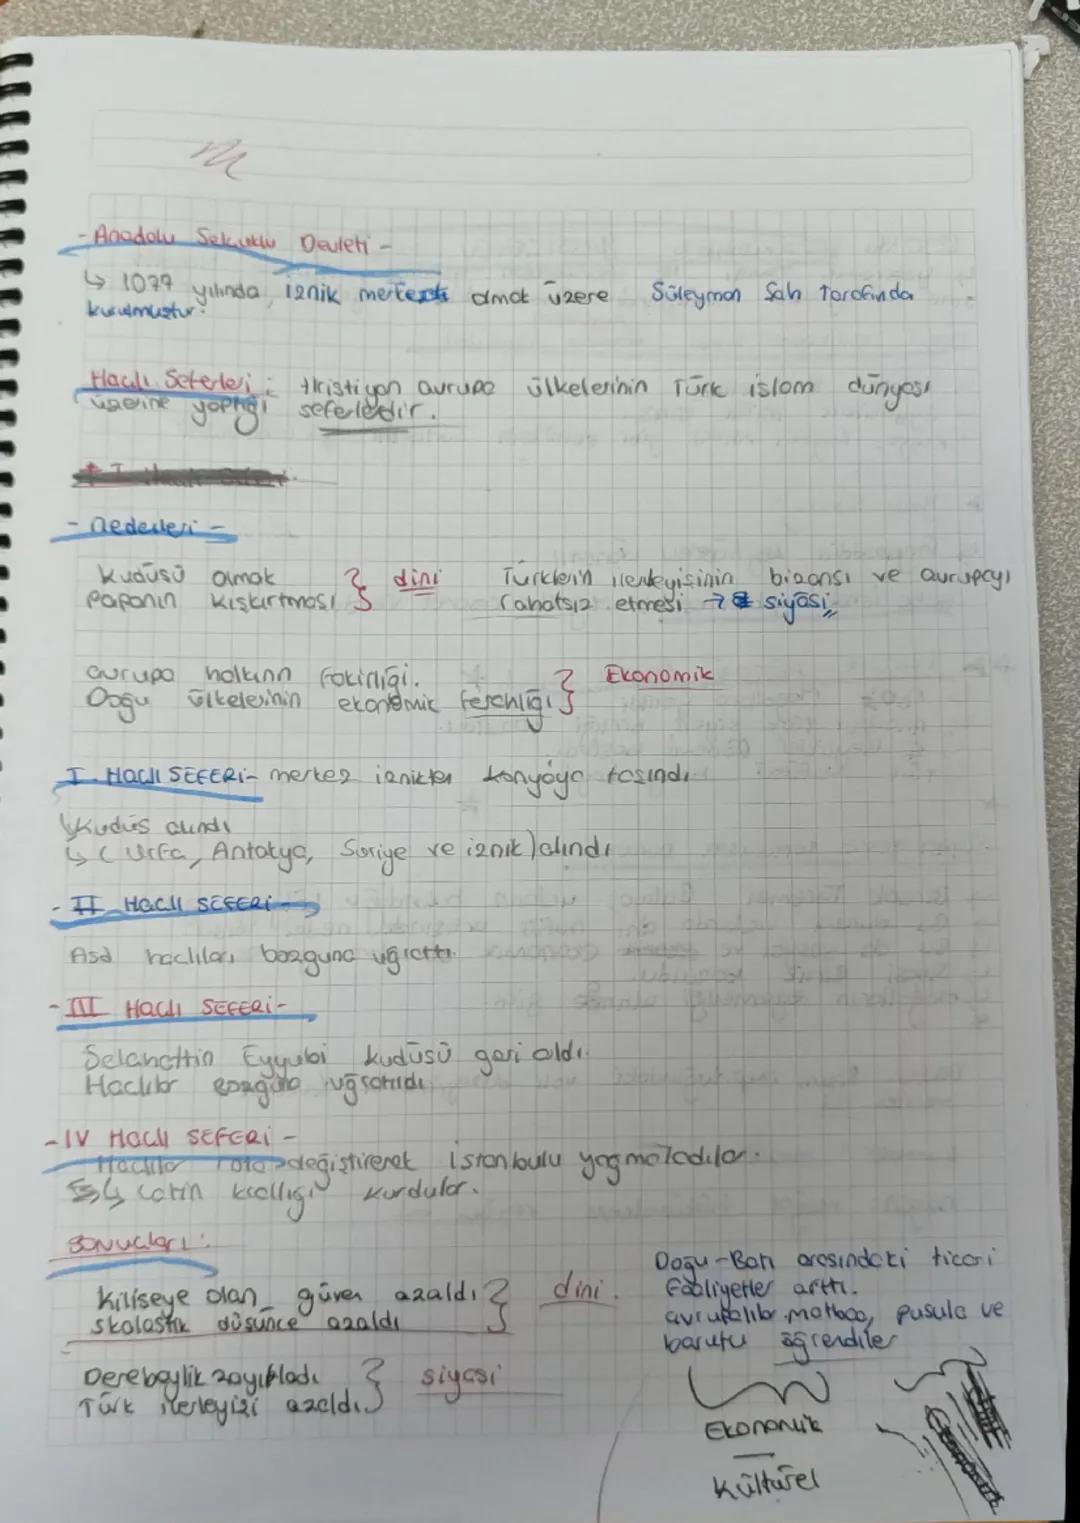 - Anadolu Selcuklu Devleti -
↳ 1077 yılında, iznik merkezli olmak üzere Süleyman Şah Tarafında
kurulmuştur.
Haçlı Seferleri : Hristiyan avrupa ülkelerinin Türk islam dünyası
üzerine yaptığı seferlerdir.
- nedenleri -
Kudüsü almak } dini
Papanın kışkırtması
Türklerin ilerleyişinin bizansı ve avrupayı
rahatsız etmesi → siyasi
avrupa halkının fakirliği. } Ekonomik
Doğu ülkelerinin ekonomik ferahlığı
I. HAÇlI SEFERi- merkez iznikten konyaya tasındı
↳Kudüs alındı
↳ ( Urfa, Antakya, Suriye ve iznik ) alındı
- II HAÇlI SEFERi -
Asd haclıları bozguna uğrattı.
- III HAÇlI SEFERi -
Selahattin Eyyubi kudüsü geri aldı.
Haclılar bozguna uğratıldı
- IV HAÇlI SEFERi -
Haclılar rota değiştirerek istanbulu yagmaladılar.
↳ Latin krallığı kurdular.
SONUçları :
Kiliseye olan güven azaldı } dini.
skolastik düşünce azaldı
Derebeylik zayıfladı } siyasi
Türk ilerleyişi azaldı.
Doğu-Batı arasındaki ticari
faaliyetler arttı.
avrupalılar matbaa, pusula ve
barutu öğrendiler
Ekonomik
Kültürel